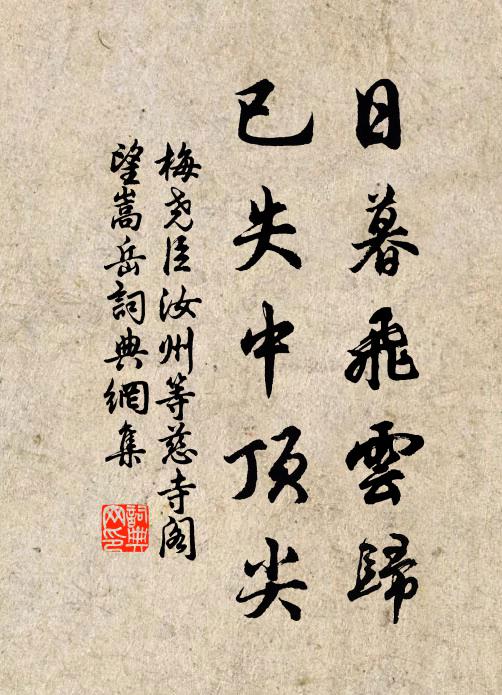 日暮飛雲歸
已失中頂尖
梅堯臣汝州等慈寺閣
望嵩岳詞典網集
詞典網印